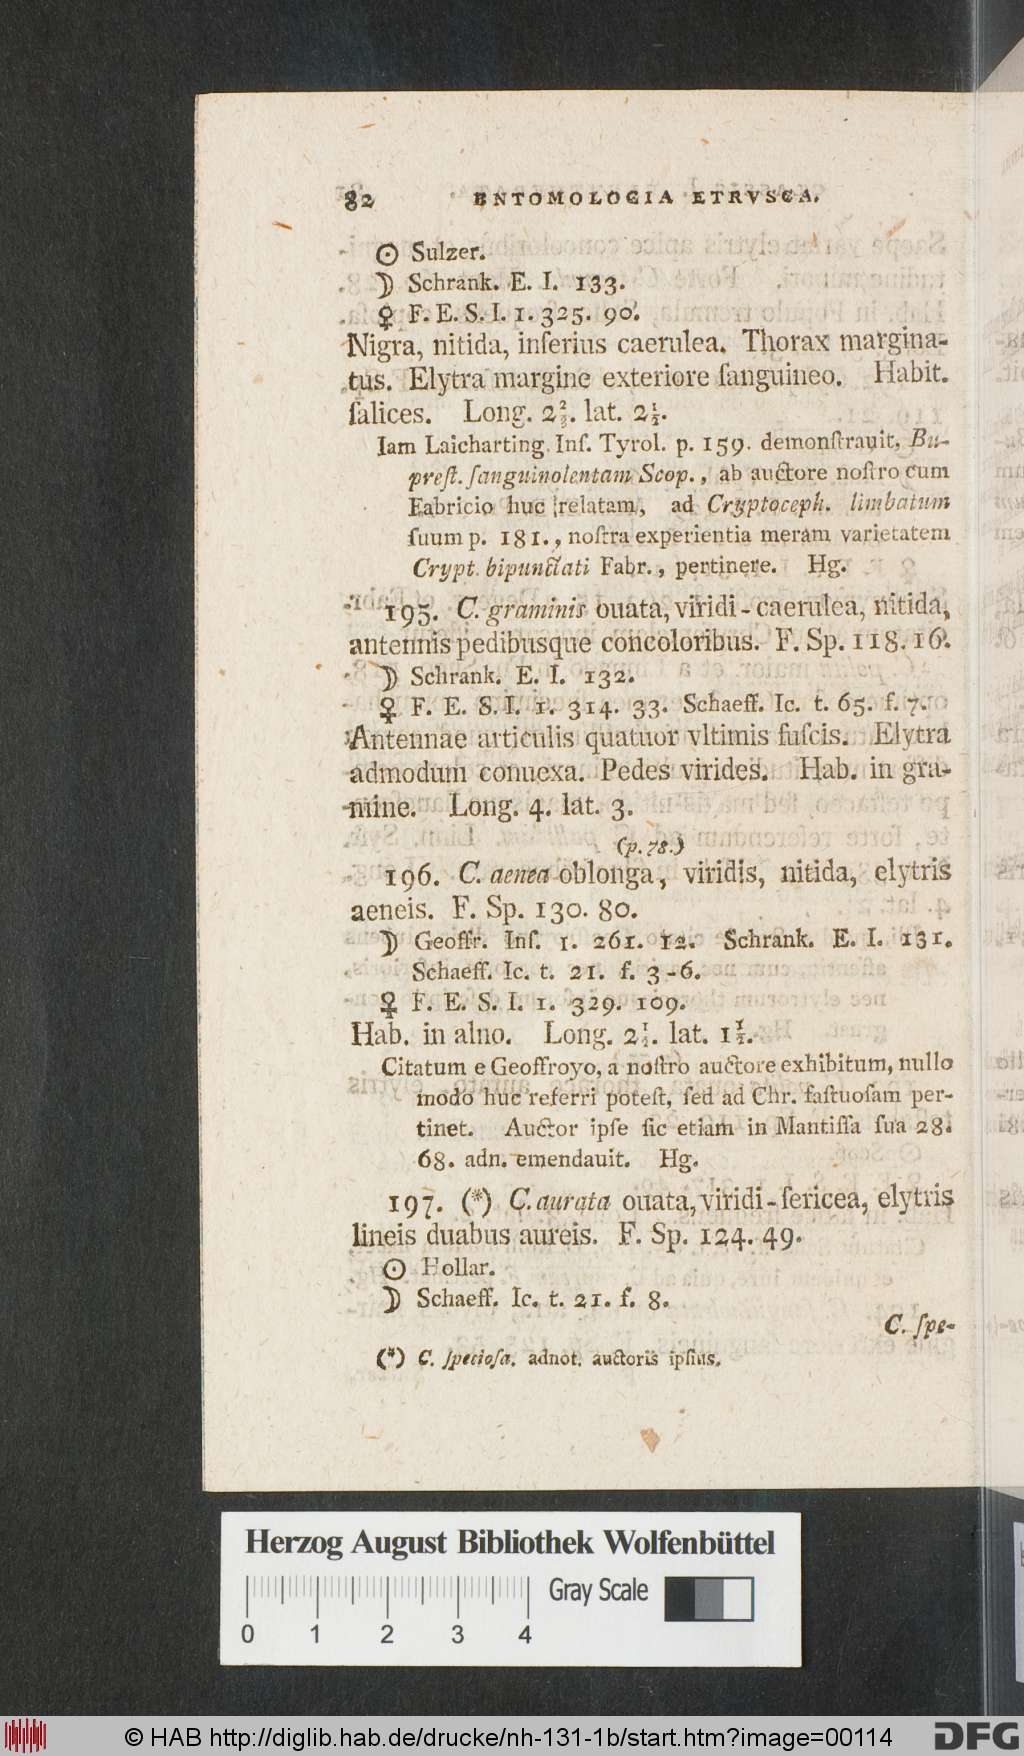 82 ENTOMOLOGIA ETRVSCA.
☉ Sulzer.
☽ Schrank. E. I. 133.
♀ F. E. S. I. 1. 325. 90.
Nigra, nitida, inſerius caerulea. Thorax margina-
tus. Elytra margine exteriore ſanguineo. Habit.
ſalices. Long. 2⅔. lat. 2½.
Iam Laicharting. Inſ. Tyrol. p. 159. demonſtrauit, Bu-
preſt. ſanguinolentam Scop., ab auctore noſtro cum
Fabricio huc relatam, ad Cryptoceph. limbatum
ſuum p. 181., noſtra experientia meram varietatem
Crypt. bipunctati Fabr., pertinere. Hg.
195. C. graminis ouata, viridi-caerulea, nitida,
antennis pedibusque concoloribus. F. Sp. 118. 16.
☽ Schrank. E. I. 132.
♀ F. E. S. I. 1. 314. 33. Schaeff. Ic. t. 65. f. 7.
Antennae articulis quatuor vltimis fuſcis. Elytra
admodum conuexa. Pedes virides. Hab. in gra-
mine. Long. 4. lat. 3.
(p. 78.)
196. C. aenea oblonga, viridis, nitida, elytris
aeneis. F. Sp. 130. 80.
☽ Geoffr. Inſ. 1. 261. 12. Schrank. E. I. 131.
Schaeff. Ic. t. 21. f. 3-6.
♀ F. E. S. I. 1. 329. 109.
Hab. in alno. Long. 2½. lat. 1½.
Citatum e Geoffroyo, a noſtro auctore exhibitum, nullo
modo huc referri poteſt, ſed ad Chr. faſtuoſam per-
tinet. Auctor ipſe ſic etiam in Mantiſſa ſua 28.
68. adn. emendauit. Hg.
197. (*) C. aurata ouata, viridi-ſericea, elytris
lineis duabus aureis. F. Sp. 124. 49.
☉ Hollar.
☽ Schaeff. Ic. t. 21. f. 8.
C. ſpe-
(*) C. ſpecioſa. adnot. auctoris ipſius.
Herzog August Bibliothek Wolfenbüttel
Gray Scale
0 1 2 3 4
© HAB http://diglib.hab.de/drucke/nh-131-1b/start.htm?image=00114
DFG